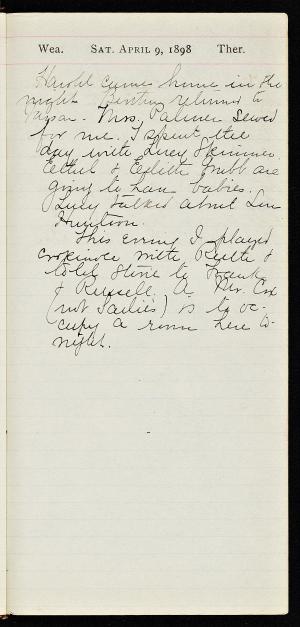 Wea. SAT. APRIL 9, 1898 Ther.
Harold came home in the
night. returned to
Mrs. Palmer sewed
for me. I spent the
day with Lucy Skinner.
Ethel & Edith are
going to have babies.
Lucy talked about
This evening I played
crokinole with &
told to Frank
& Russell. A Mr. Cox
(not Sadie's) is to oc-
cupy a room here to-
night.